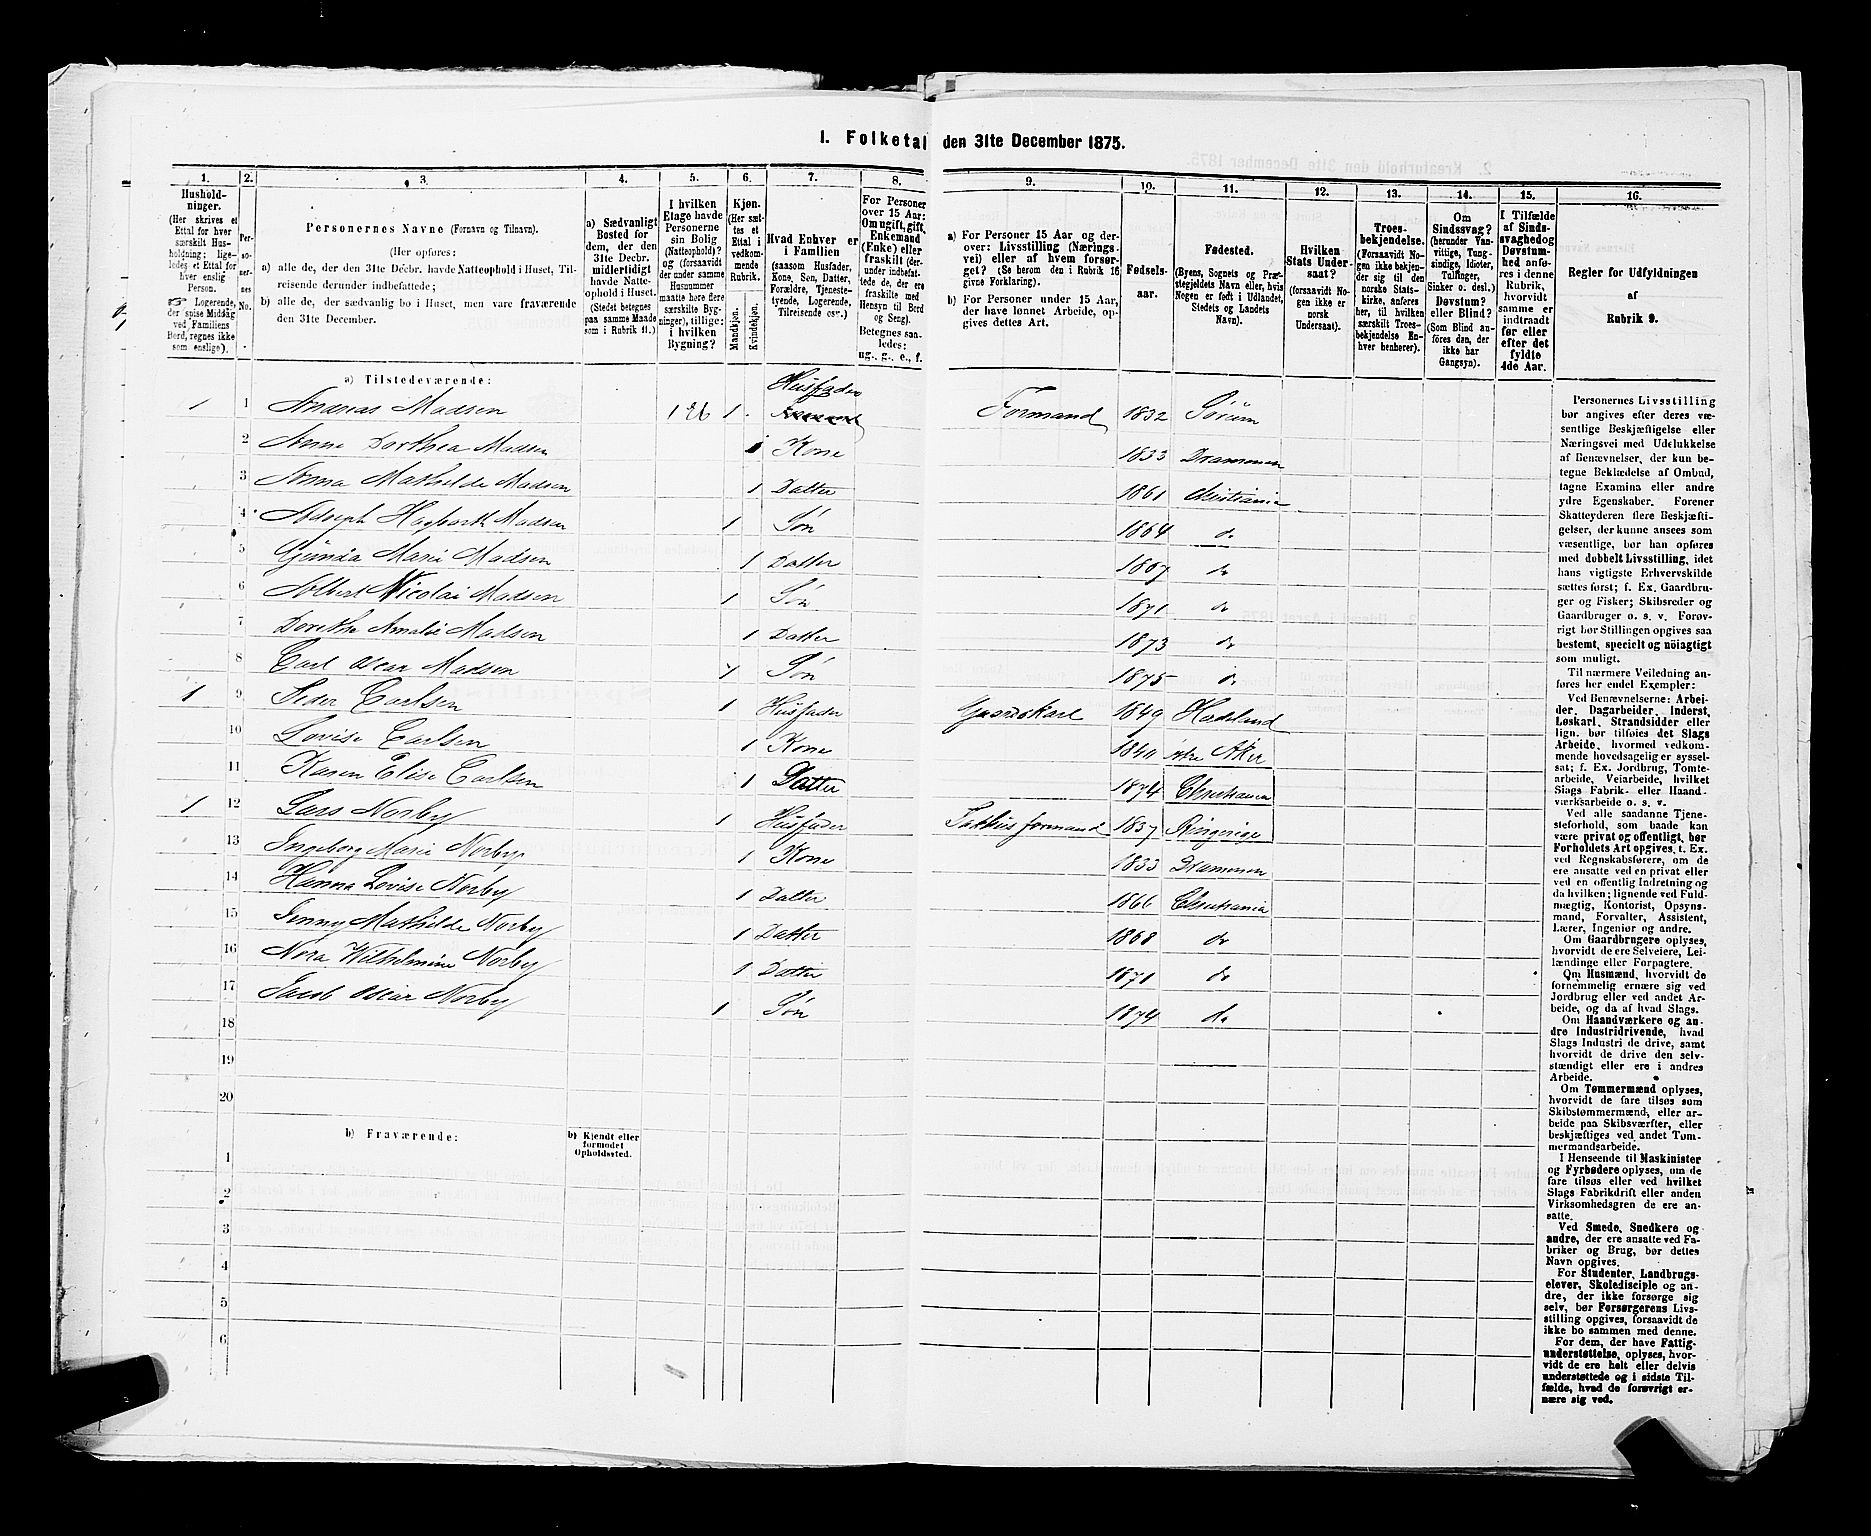 1. Folketal den 31te December 1875.
1. 2. 3. 4. 5. 6. 7. 8. 9. 10. 11. 12. 13. 14. 15. 16.
Hushold-
ninger.
(Her skrives et
Ettal for hver
særskilt Hus-
holdning; lige-
ledes et Ettal for
hver enslig
Person.
☞ Logerende,
der spise Middag
ved Familiens
Bord, regnes ikke
som enslige).
Per-
so-
ner-
nes
No.
Personernes Navne (Fornavn og Tilnavn).
(Her opføres:
a) alle de, der den 31te Decbr. havde Natteophold i Huset, Til-
reisende derunder indbefattede;
b) alle de, der sædvanlig bo i Huset, men vare fraværende
den 31te December.
a) Sædvanligt
Bosted for
dem, der den
31te Decbr.
midlertidigt
havde Natte-
ophold i Huset.
(Stedet betegnes
paa samme Maade
som i Rubrik 11.)
I hvilken
Etage havde
Personerne
sin Bolig
(Natteophold)?
og (forsaavidt
der under samme
Husnummer
maatte høre flere
særskilte Byg-
ninger), tillige:
i hvilken
Bygning?
Kjøn.
(Her sæt-
tes et
Ettal i
vedkom-
mende
Rubrik.)
Mandkjøn.
Kvindekjøn.
Hvad Enhver er
i Familien
(saasom Husfader,
Kone, Søn, Datter,
Forældre, Tjeneste-
tyende, Logerende,
Tilreisende osv.)
For Personer
over 15 Aar:
Om ugift, gift,
Enkemand
(Enke) eller
fraskilt (der-
under indbefat-
tede de, der ere
fraskilte med
Hensyn til Bord
og Seng).
Betegnes saa-
ledes:
ug., g., e., f.
a) For Personer 15 Aar og der-
over: Livsstilling (Nærings-
vei) eller af hvem forsør-
get? (Se herom den i Rubrik 16
givne Forklaring).
b) For Personer under 15 Aar,
der have lønnet Arbeide, op-
gives dettes Art.
Fødsels-
aar.
Fødested.
(Byens, Sognets og Præ-
stegjeldets Navn eller, hvis
Nogen er født i Udlandet,
Stedets og Landets
Navn).
Hvilken
Stats Under-
saat?
(forsaavidt No-
gen ikke er
norsk
Undersaat).
Troes-
bekjendelse.
(Forsaavidt No-
gen ikke bekjen-
der sig til den
norske Stats-
kirke, anføres
her, til hvilken
særskilt Troes-
bekjendelse En-
hver henhører).
Om
Sindssvag?
(herunder Van-
vittige, Tung-
sindige, Idioter,
Tullinger,
Sinker o. desl.)
Døvstum?
eller Blind?
(Som Blind an-
føres den, der
ikke har
Gangsyn).
I Tilfælde
af Sinds-
svaghed og
Døvstum-
hed anfø-
res i denne
Rubrik,
hvorvidt
samme er
indtraadt
før eller
efter det
fyldte
4de Aar.
Regler for Udfyldningen
af
Rubrik 9.
a) Tilstedeværende:
1 1 Andreas Madsen 1 1 Husfader Formand 1832 Sørum
2 Anne Dorthea Madsen 1 Kone 1833 Drammen
3 Anna Mathilde Madsen 1 Datter 1861 Christiania
4 Adolph Hagbarth Madsen 1 Søn 1864 do
5 Gunda Marie Madsen 1 Datter 1867 do
6 Albert Nicolai Madsen 1 Søn 1871 do
7 Dorethe Amalie Madsen 1 Datter 1873 do
8 Carl Oscar Madsen 1 Søn 1875 do
1 9 Peder Carlsen 1 Husfader Gaardskarl 1849 Hadeland
10 Lovise Carlsen 1 Kone 1840 Aker
11 Karen Elise Carlsen 1 Datter 1874 Christiania
1 12 Lars Norby 1 Husfader formand 1837 Ringerige
13 Ingeborg Marie Norby 1 Kone 1833 Drammen
14 Hanna Lovise Norby 1 Datter 1866 Christiania
15 Jenny Mathilde Norby 1 Datter 1868 do
16 Nora Wilhelmine Norby 1 Datter 1871 do
17 Jacob Oscar Norby 1 Søn 1874 do
18
19
20
b) Fraværende:
b) Kjendt eller
formodet
Opholdssted.
1
2
3
4
5
6
Personernes Livsstilling
bør angives efter deres væ-
sentlige Beskjæftigelse eller
Næringsvei med Udelukkelse
af Benævnelser, der kun be-
tegne Beklædelse af Ombud,
tagne Examina eller andre
ydre Egenskaber. Forener
Skatteyderen flere Beskjæfti-
gelser, der kunne ansees som
væsentlige, bør han opføres
med dobbelt Livsstilling, idet
hans vigtigste Erhvervskilde
sættes først; f. Ex. Gaardbru-
ger og Fisker; Skibsreder og
Gaardbruger o. s. v. Forøv-
rigt bør Stillingen opgives saa
bestemt, specielt og nöiagtigt
som muligt.
Til nærmere Veiledning an-
føres her endel Exempler:
Ved Benævnelserne: Arbei-
der, Dagarbeider, Inderst,
Løskarl, Strandsidder eller
lign. bør tilføies det Slags
Arbeide, hvormed vedkom-
mende hovedsagelig er syssel-
sat; f. Ex. Jordbrug, Tomte-
arbeide, Veiarbeide, hvilket
Slags Fabrik- eller Haand-
værksarbeide o. s. v.
Ved alle saadanne Tjene-
steforhold, som baade kan
være privat og offentligt, bør
Forholdets Art opgives, t. Ex.
ved Regnskabsførere, om de
ere ansatte ved en privat eller
ved en offentlig Indretning og
da hvilken; lignende ved Fuld-
mægtig, Kontorist, Opsyns-
mand, Forvalter, Assistent,
Lærer, Ingeniør og andre.
Om Gaardbrugere oplyses,
hvorvidt de ere Selveiere, Lei-
lændinge eller Forpagtere.
Om Husmænd, hvorvidt de
fornemmelig ernære sig ved
Jordbrug eller ved andet Ar-
beide, og da af hvad Slags.
Om Haandværkere og an-
dre Industridrivende, hvad
Slags Industri de drive, samt
hvorvidt de drive den selv-
stændigt eller ere i andres
Arbeide.
Om Tømmermænd oplyses,
hvorvidt de fare tilsøs som
Skibstømmermænd, eller ar-
beide paa Skibsværfter, eller
beskjæftiges ved andet Tøm-
mermandsarbeide.
I Henseende til Maskinister
og Fyrbødere oplyses, om de
fare tilsøs eller ved hvilket
Slags Fabrikdrift eller anden
Virksomhedsgren de ere an-
satte.
Ved Smede, Snedkere og
andre, der ere ansatte ved Fa-
briker og Brug, bør dettes
Navn opgives.
For Studenter, Landbrugs-
elever, Skoledisciple og an-
dre, der ikke forsørge sig
selv, bør Forsørgerens Livs-
stilling opgives, forsaavidt de
ikke bo sammen med denne.
For dem, der have Fattig-
understøttelse, oplyses, hvor-
vidt de ere helt eller delvis
understøttede og i sidste Til-
fælde, hvad de forøvrigt er-
nære sig ved.